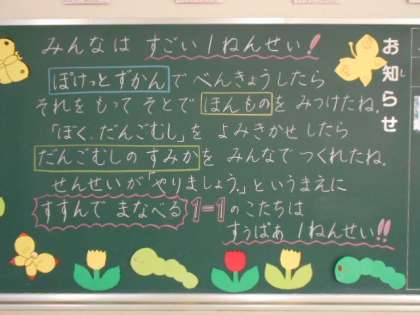 お知らせ
みんなは すごい 1ねんせい!
ぽけっとずかんで べんきょうしたら
それを もって そとで ほんものを みつけたね。
「ぼく、だんごむし」を よみきかせ したら
だんごむしの すみかを みんなで つくれたね。
せんせいが「やりましょう。」という まえに
すすんで まなべる 1-1のこたちは
すうぱあ 1ねんせい!!